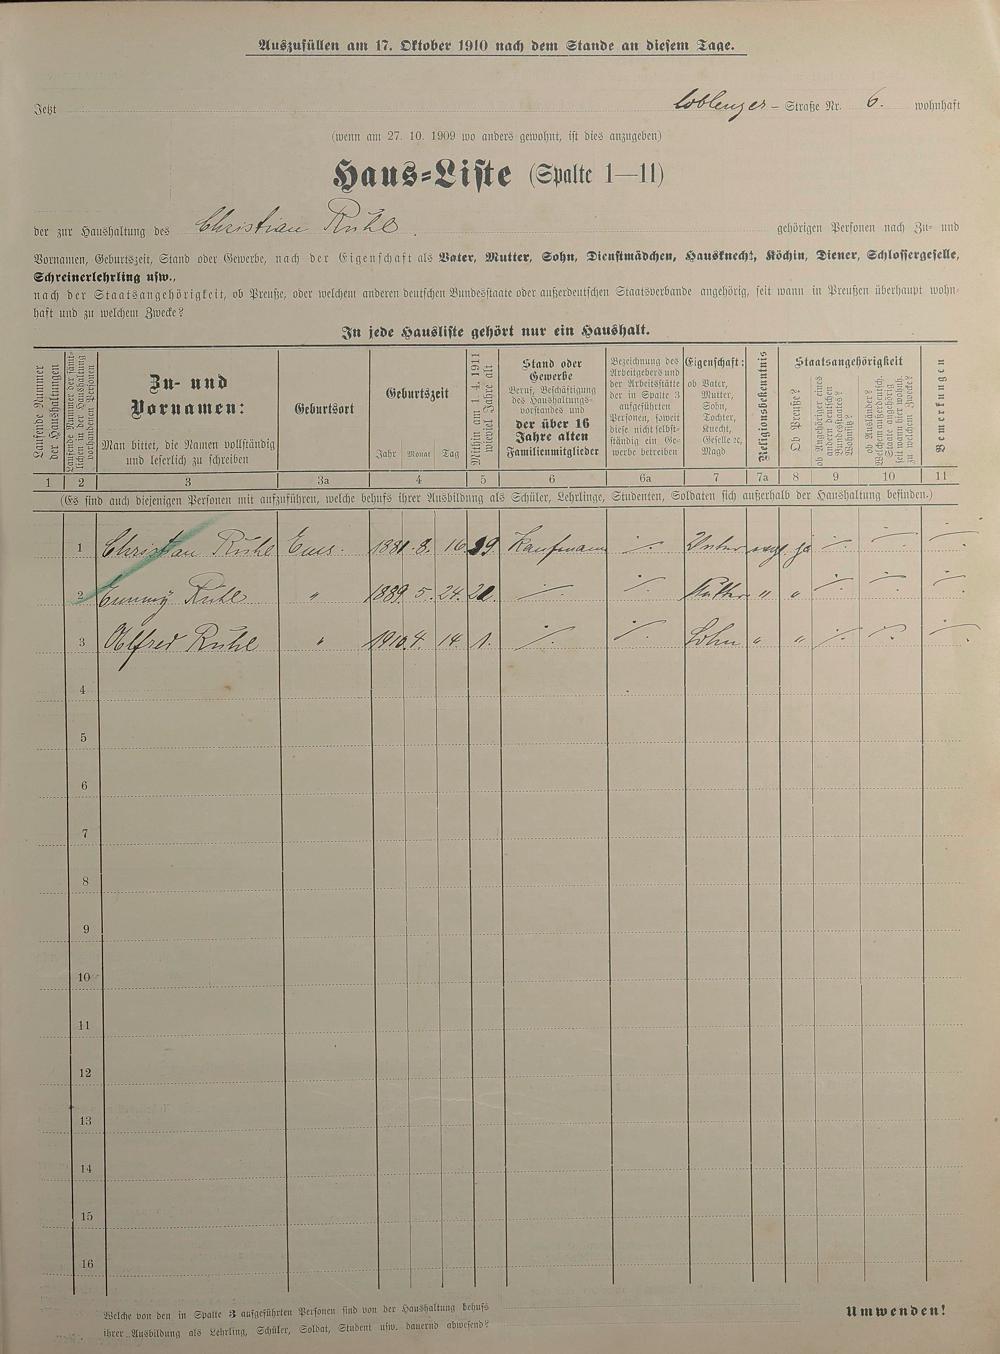 Auszufüllen am 17. Oktober 1910 nach dem Stande an diesem Tage.
Jetzt Coblenzer - Straße Nr. 6. wohnhaft
(wenn am 27. 10. 1909 wo anders gewohnt, ist dies anzugeben)
Haus-Liste (Spalte 1—11)
der zur Haushaltung des Christian Rühl. gehörigen Personen nach Zu- und
Vornamen, Geburtszeit, Stand oder Gewerbe, nach der Eigenschaft als Vater, Mutter, Sohn, Dienstmädchen, Hausknecht, Köchin, Diener, Schlossergeselle,
Schreinerlehrling usw.,
nach der Staatsangehörigkeit, ob Preuße, oder welchem anderen deutschen Bundesstaate oder außerdeutschen Staatsverbande angehörig, seit wann in Preußen überhaupt wohn-
haft und zu welchem Zwecke?
In jede Hausliste gehört nur ein Haushalt.
Laufende Nummer
der Haushaltungen
Laufende Nummer der sämt-
lichen in der Haushaltung
vorhandenen Personen
Zu- und
Vornamen:
Man bittet, die Namen vollständig
und leserlich zu schreiben
Geburtsort
Geburtszeit
Jahr Monat Tag
Mithin am 1. 4. 1911
wieviel Jahre alt
Stand oder
Gewerbe
Beruf, Beschäftigung
des Haushaltungs-
vorstandes und
der über 16
Jahre alten
Familienmitglieder
Bezeichnung des
Arbeitgebers und
der Arbeitsstätte
der in Spalte 3
aufgeführten
Personen, soweit
diese nicht selbst-
ständig ein Ge-
werbe betreiben
Eigenschaft:
ob Vater,
Mutter,
Sohn,
Tochter,
Knecht,
Geselle ec,
Magd
Religionsbekenntnis
Staatsangehörigkeit
Ob Preuße?
ob Angehöriger eines
andern deutschen
Bundesstaates?
Wohnsitz?
ob Ausländer?
Welchem außerdeutsch.
Staate angehörig
seit wann hier wohnh.
zu welchem Zwecke?
Bemerkungen
1 2 3 3a 4 5 6 6a 7 7a 8 9 10 11
(Es sind auch diejenigen Personen mit aufzuführen, welche behufs ihrer Ausbildung als Schüler, Lehrlinge, Studenten, Soldaten sich außerhalb der Haushaltung befinden.)
1 Christian Rühl Ems. 1881. 8. 16. 29 Kaufmann ./. Vater evgl. ja ./. — —
2 Emmy Rühl " 1889. 5. 24. ./. ./. Mutter " " ./. — —
3 Alfred Rühl " 1910. 4. 14. 1. ./. ./. Sohn " " ./. ./. —
4
5
6
7
8
9
10
11
12
13
14
15
16
Welche von den in Spalte 3 aufgeführten Personen sind von der Haushaltung behufs
ihrer Ausbildung als Lehrling, Schüler, Soldat, Student usw. dauernd abwesend?
Umwenden!